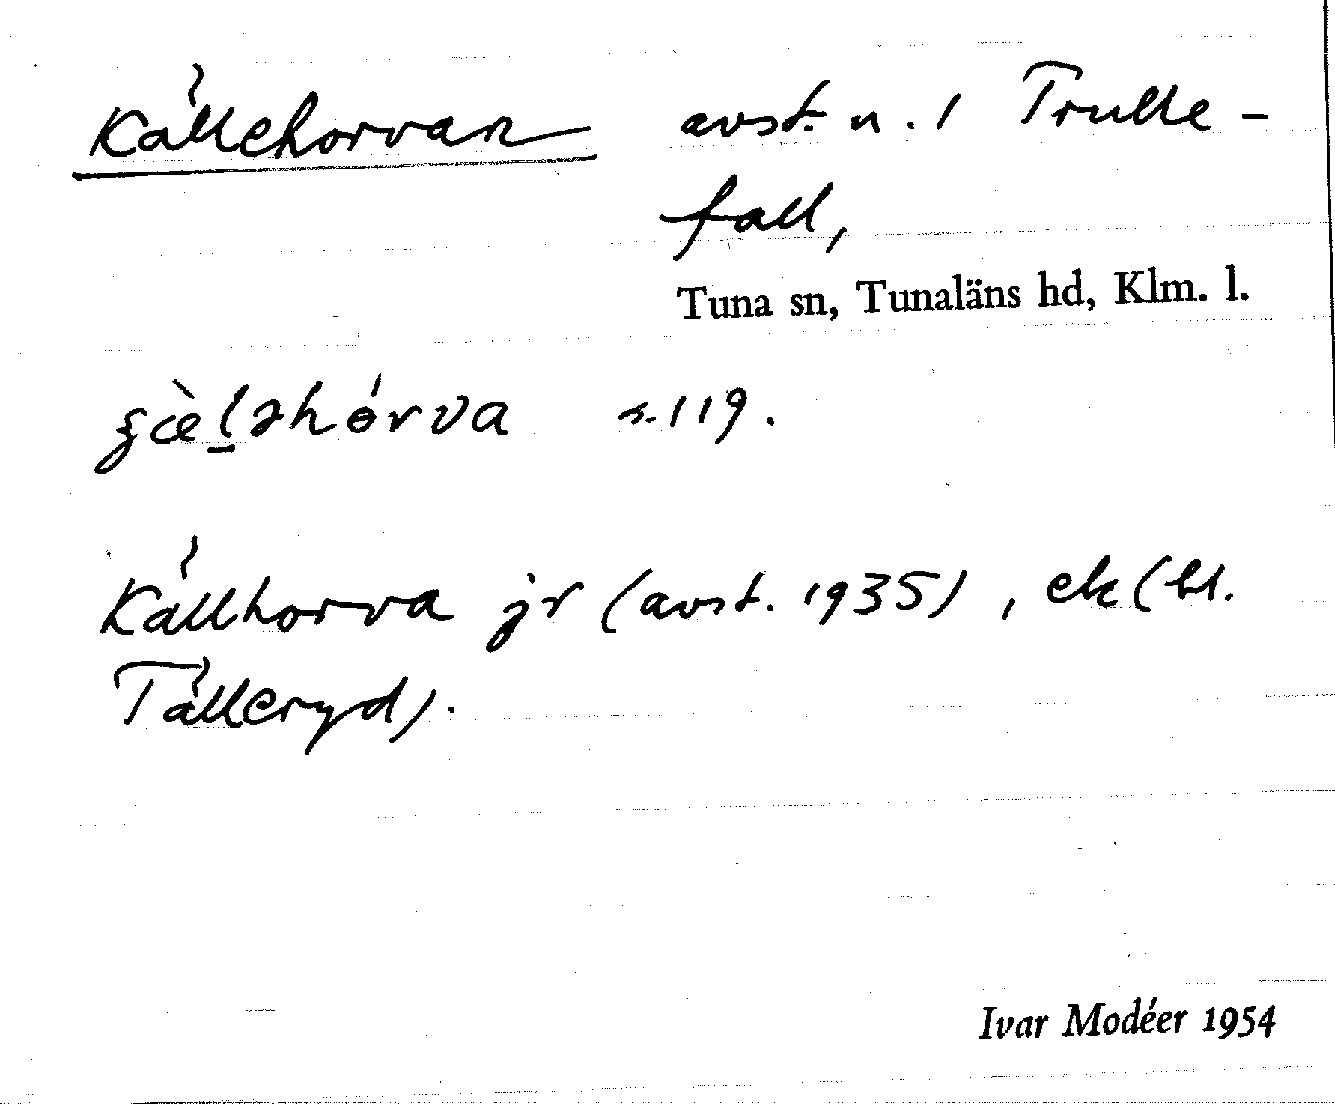 Källehorvan avst. n. 1 Trulle-
fall,
Tuna sn, Tunaläns hd, Klm. l.
s. 119.
Källhorva jr (avst. 1935), ek (bl.
Tälleryd).
Ivar Modéer 1954